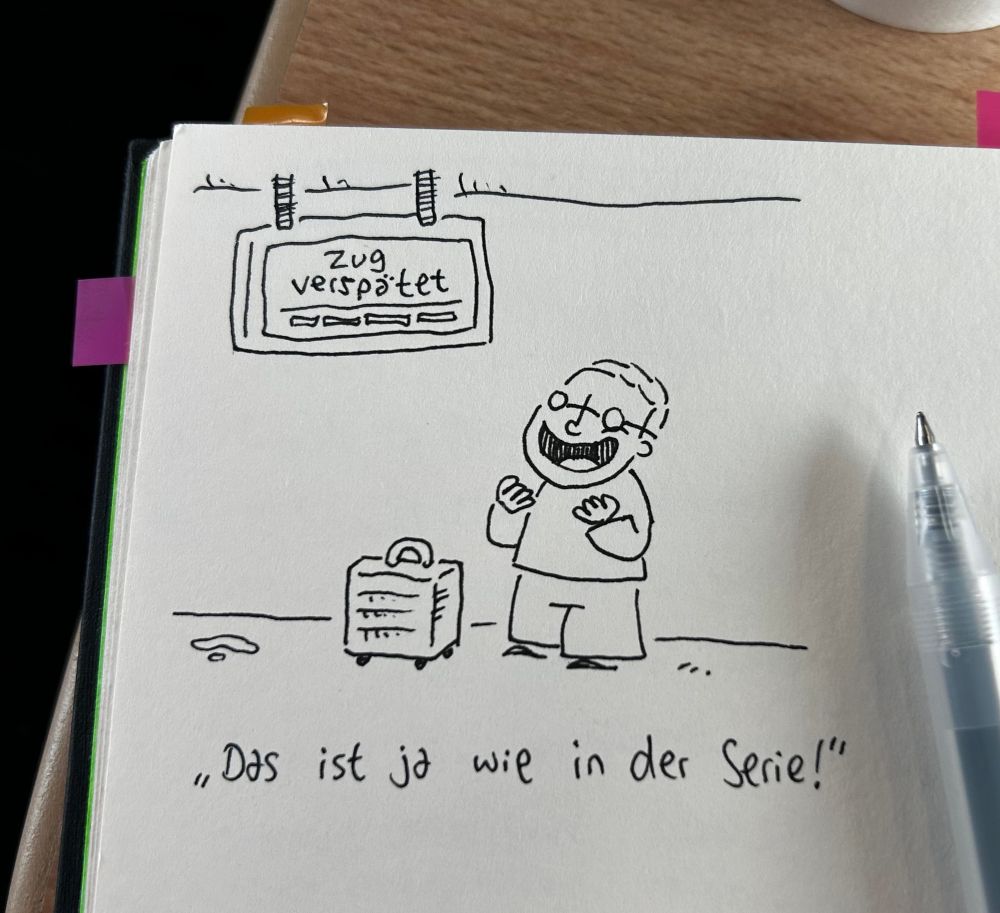 Zug
verspätet
„Das ist ja wie in der Serie!“